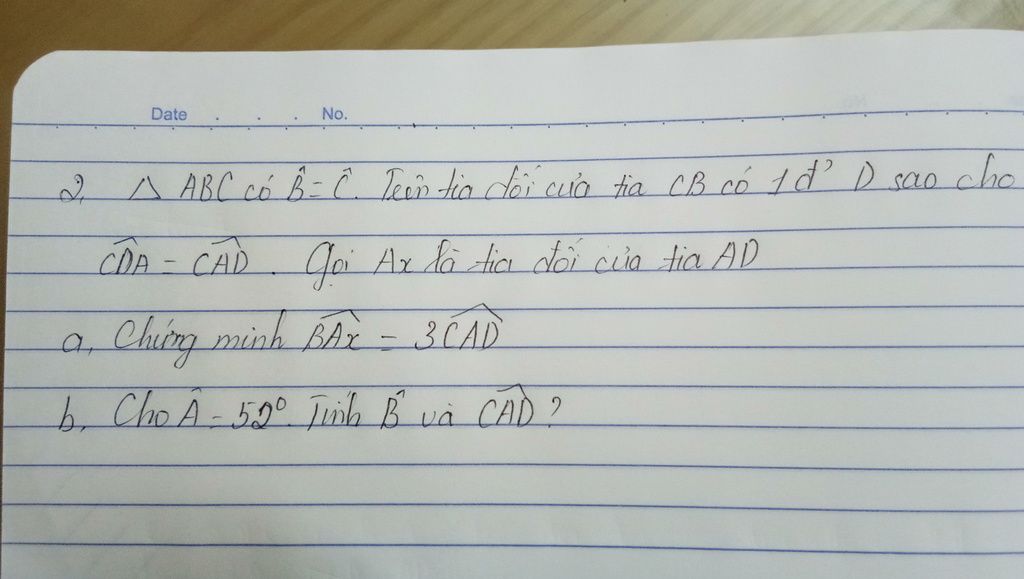 Date . . . No.
2, △ ABC có B̂ = Ĉ. Trên tia đối của tia CB có 1 đ' D sao cho
CDA = CAD. Gọi Ax là tia đối của tia AD
a, Chứng minh BAx = 3CAD
b, Cho Â = 52⁰. Tính B̂ và CAD ?